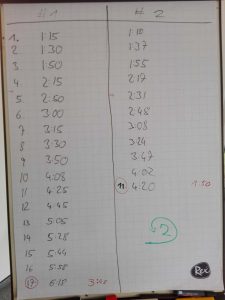 #1 #2
1. 1:15 1:10
2 1:30 1:37
3. 1:50 1:55
4. 2:15 2:17
5. 2:50 2:31
6. 3:00 2:48
7 3:15 3:08
8 3:30 3:24
9 3:50 3:47
10 4:08 4:02
11 4:25 11 4:20 1:50
12 4:45
13 5:05
14 5:28 2
15 5:44
16 5:58
17 6:18 Rex